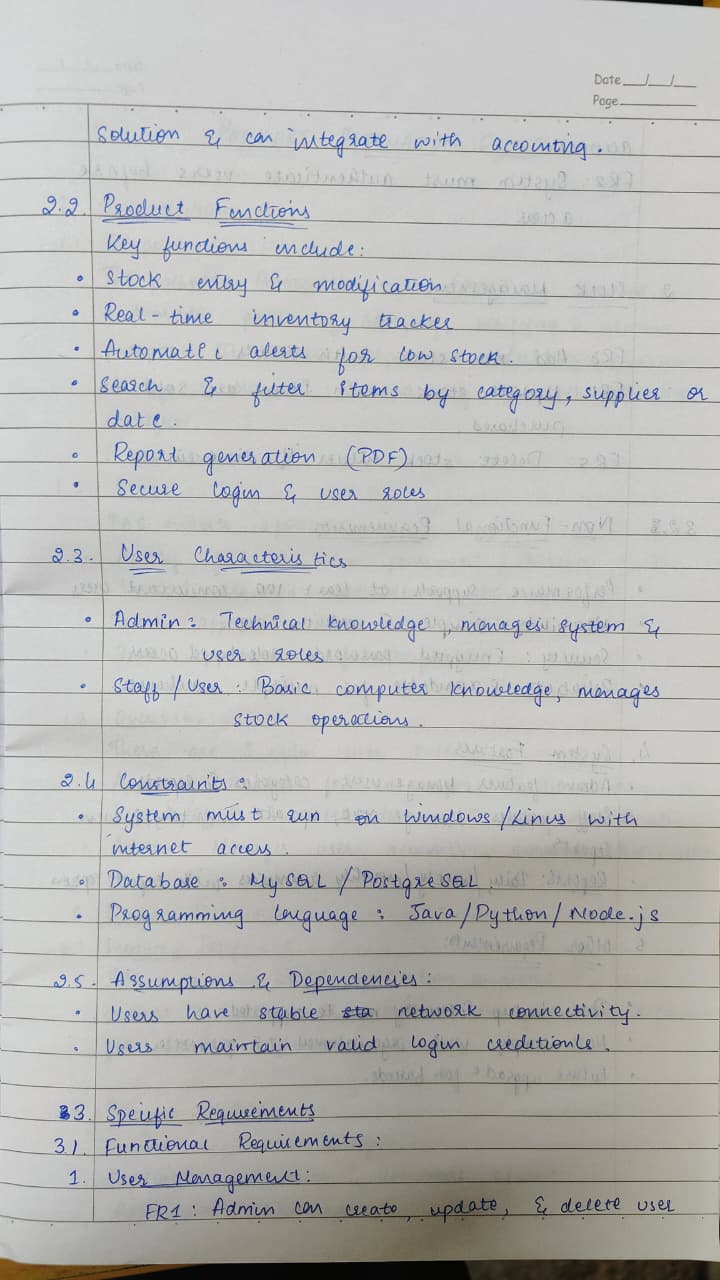 Date __/__/__
Page ______
Solution & can integrate with accounting.
2.2. Product Functions
Key functions include:
• Stock entry & modification
• Real-time inventory tracker
• Automatic alerts for low stock.
• Search & filter items by category, supplier or
date.
• Report generation (PDF)
• Secure login & user roles
2.3. User Characteristics
• Admin: Technical knowledge, manages system &
user roles
• Staff/User: Basic computer knowledge, manages
stock operations.
2.4 Constraints:
• System must run on Windows/Linus with
internet access.
• Database: MySQL/PostgreSQL
• Programming language: Java/Python/Node.js
2.5. Assumptions & Dependencies:
• Users have stable sta network connectivity.
• Users maintain valid login creditionls.
3. Specific Requirements
3.1. Functional Requirements:
1. User Management:
FR1: Admin can create, update, & delete user